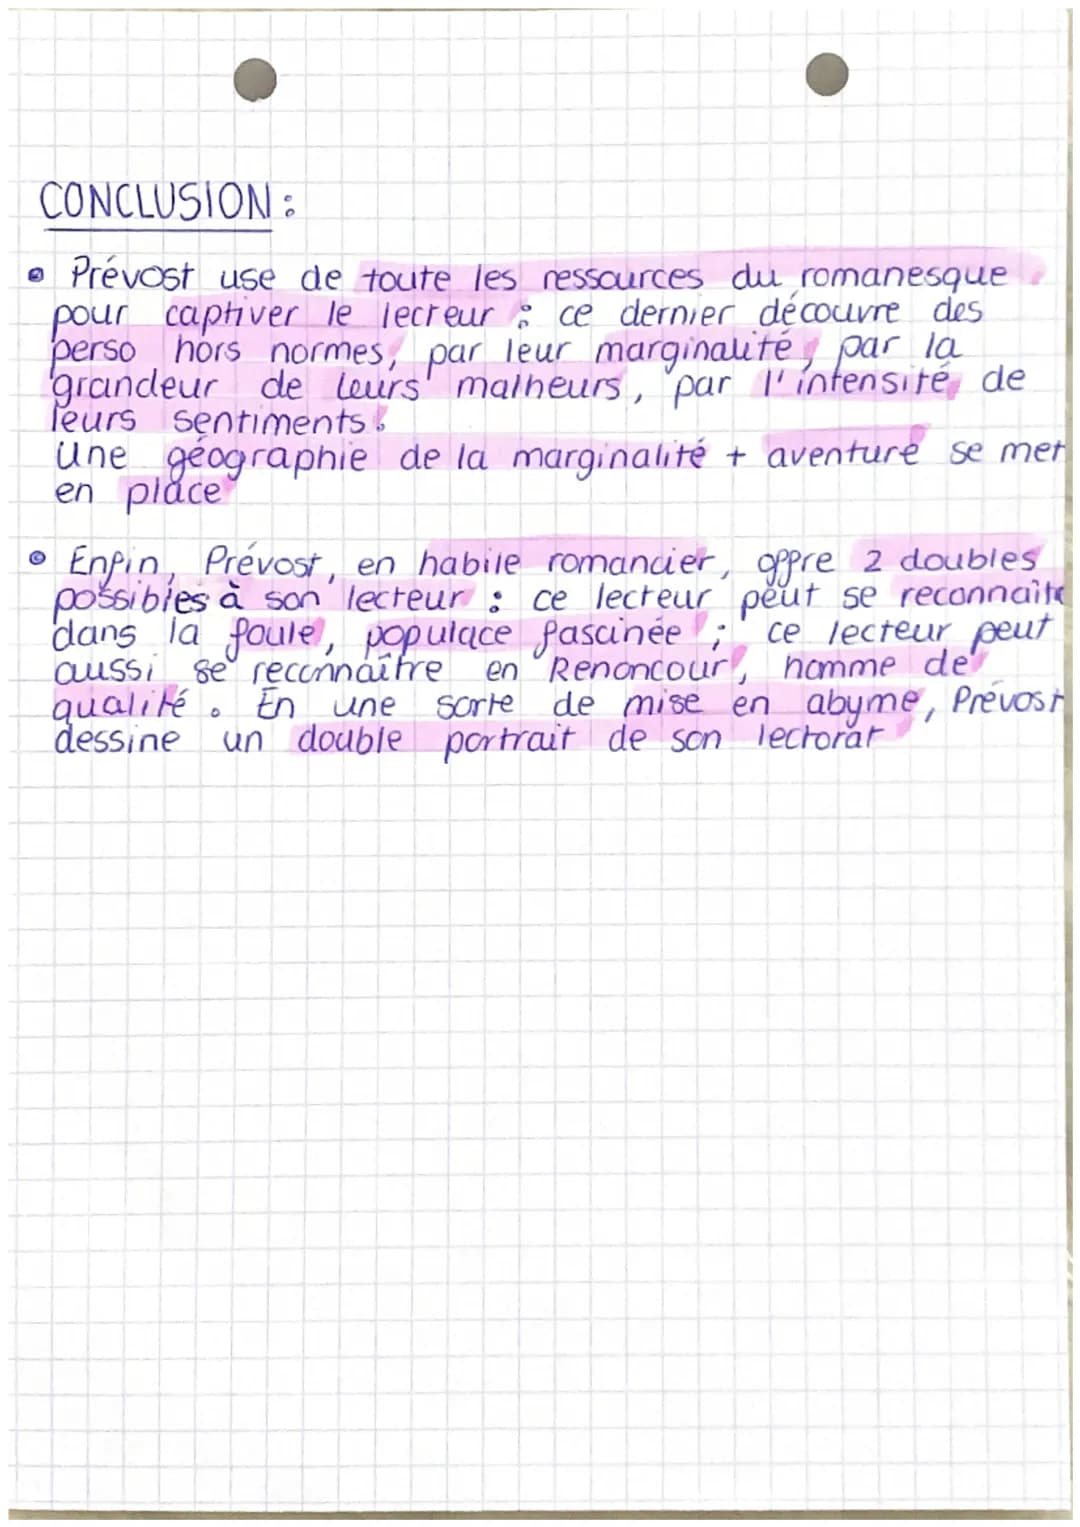 CONCLUSION :
• Prévost use de toute les ressources du romanesque
pour captiver le lecteur : ce dernier découvre des
perso hors normes, par leur marginalité, par la
grandeur de leurs malheurs, par l'intensité de
leurs sentiments.
Une géographie de la marginalité + aventure se met
en place
• Enfin, Prévost, en habile romancier, offre 2 doubles
possibles à son lecteur : ce lecteur peut se reconnaître
dans la foule, populace fascinée ; ce lecteur peut
aussi se reconnaître en Renoncour, homme de
qualité. En une sorte de mise en abyme, Prévost
dessine un double portrait de son lectorat